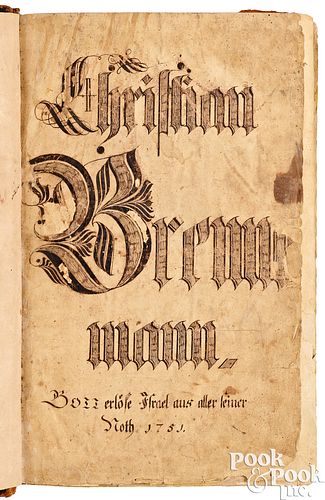 Christian
Brenne
mann.
GOTT erlöse Israel aus aller seiner
Noth. 1751.
POOK
& POOK
Inc.